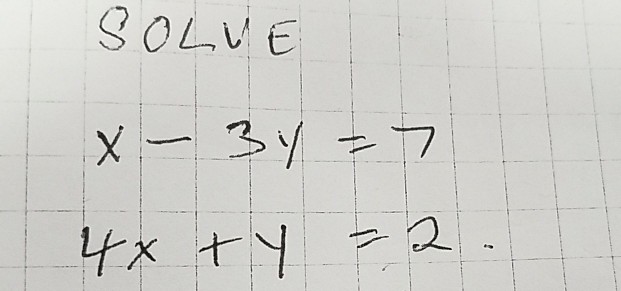 SOLVE
x - 3y = 7
4x + y = 2.